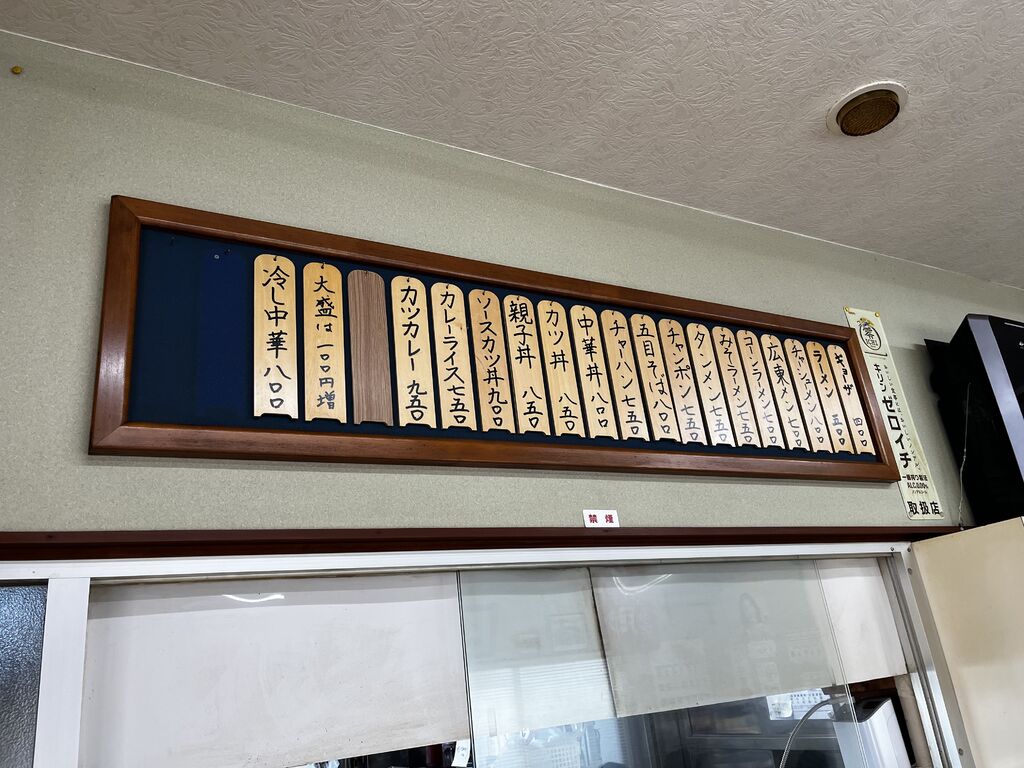 ギョーザ 四〇〇
ラーメン 五〇〇
チャーシューメン 八〇〇
広東メン 七〇〇
コーンラーメン 七五〇
みそラーメン 七五〇
タンメン 七五〇
チャンポン 七五〇
五目そば 八〇〇
チャーハン 七五〇
中華丼 八〇〇
カツ丼 八五〇
親子丼 八五〇
ソースカツ丼 九〇〇
カレーライス 七五〇
カツカレー 九五〇
大盛は 一〇〇円増
冷し中華 八〇〇
キリン ゼロイチ
一番搾り製法
ALC.0.00%
取扱店
禁煙